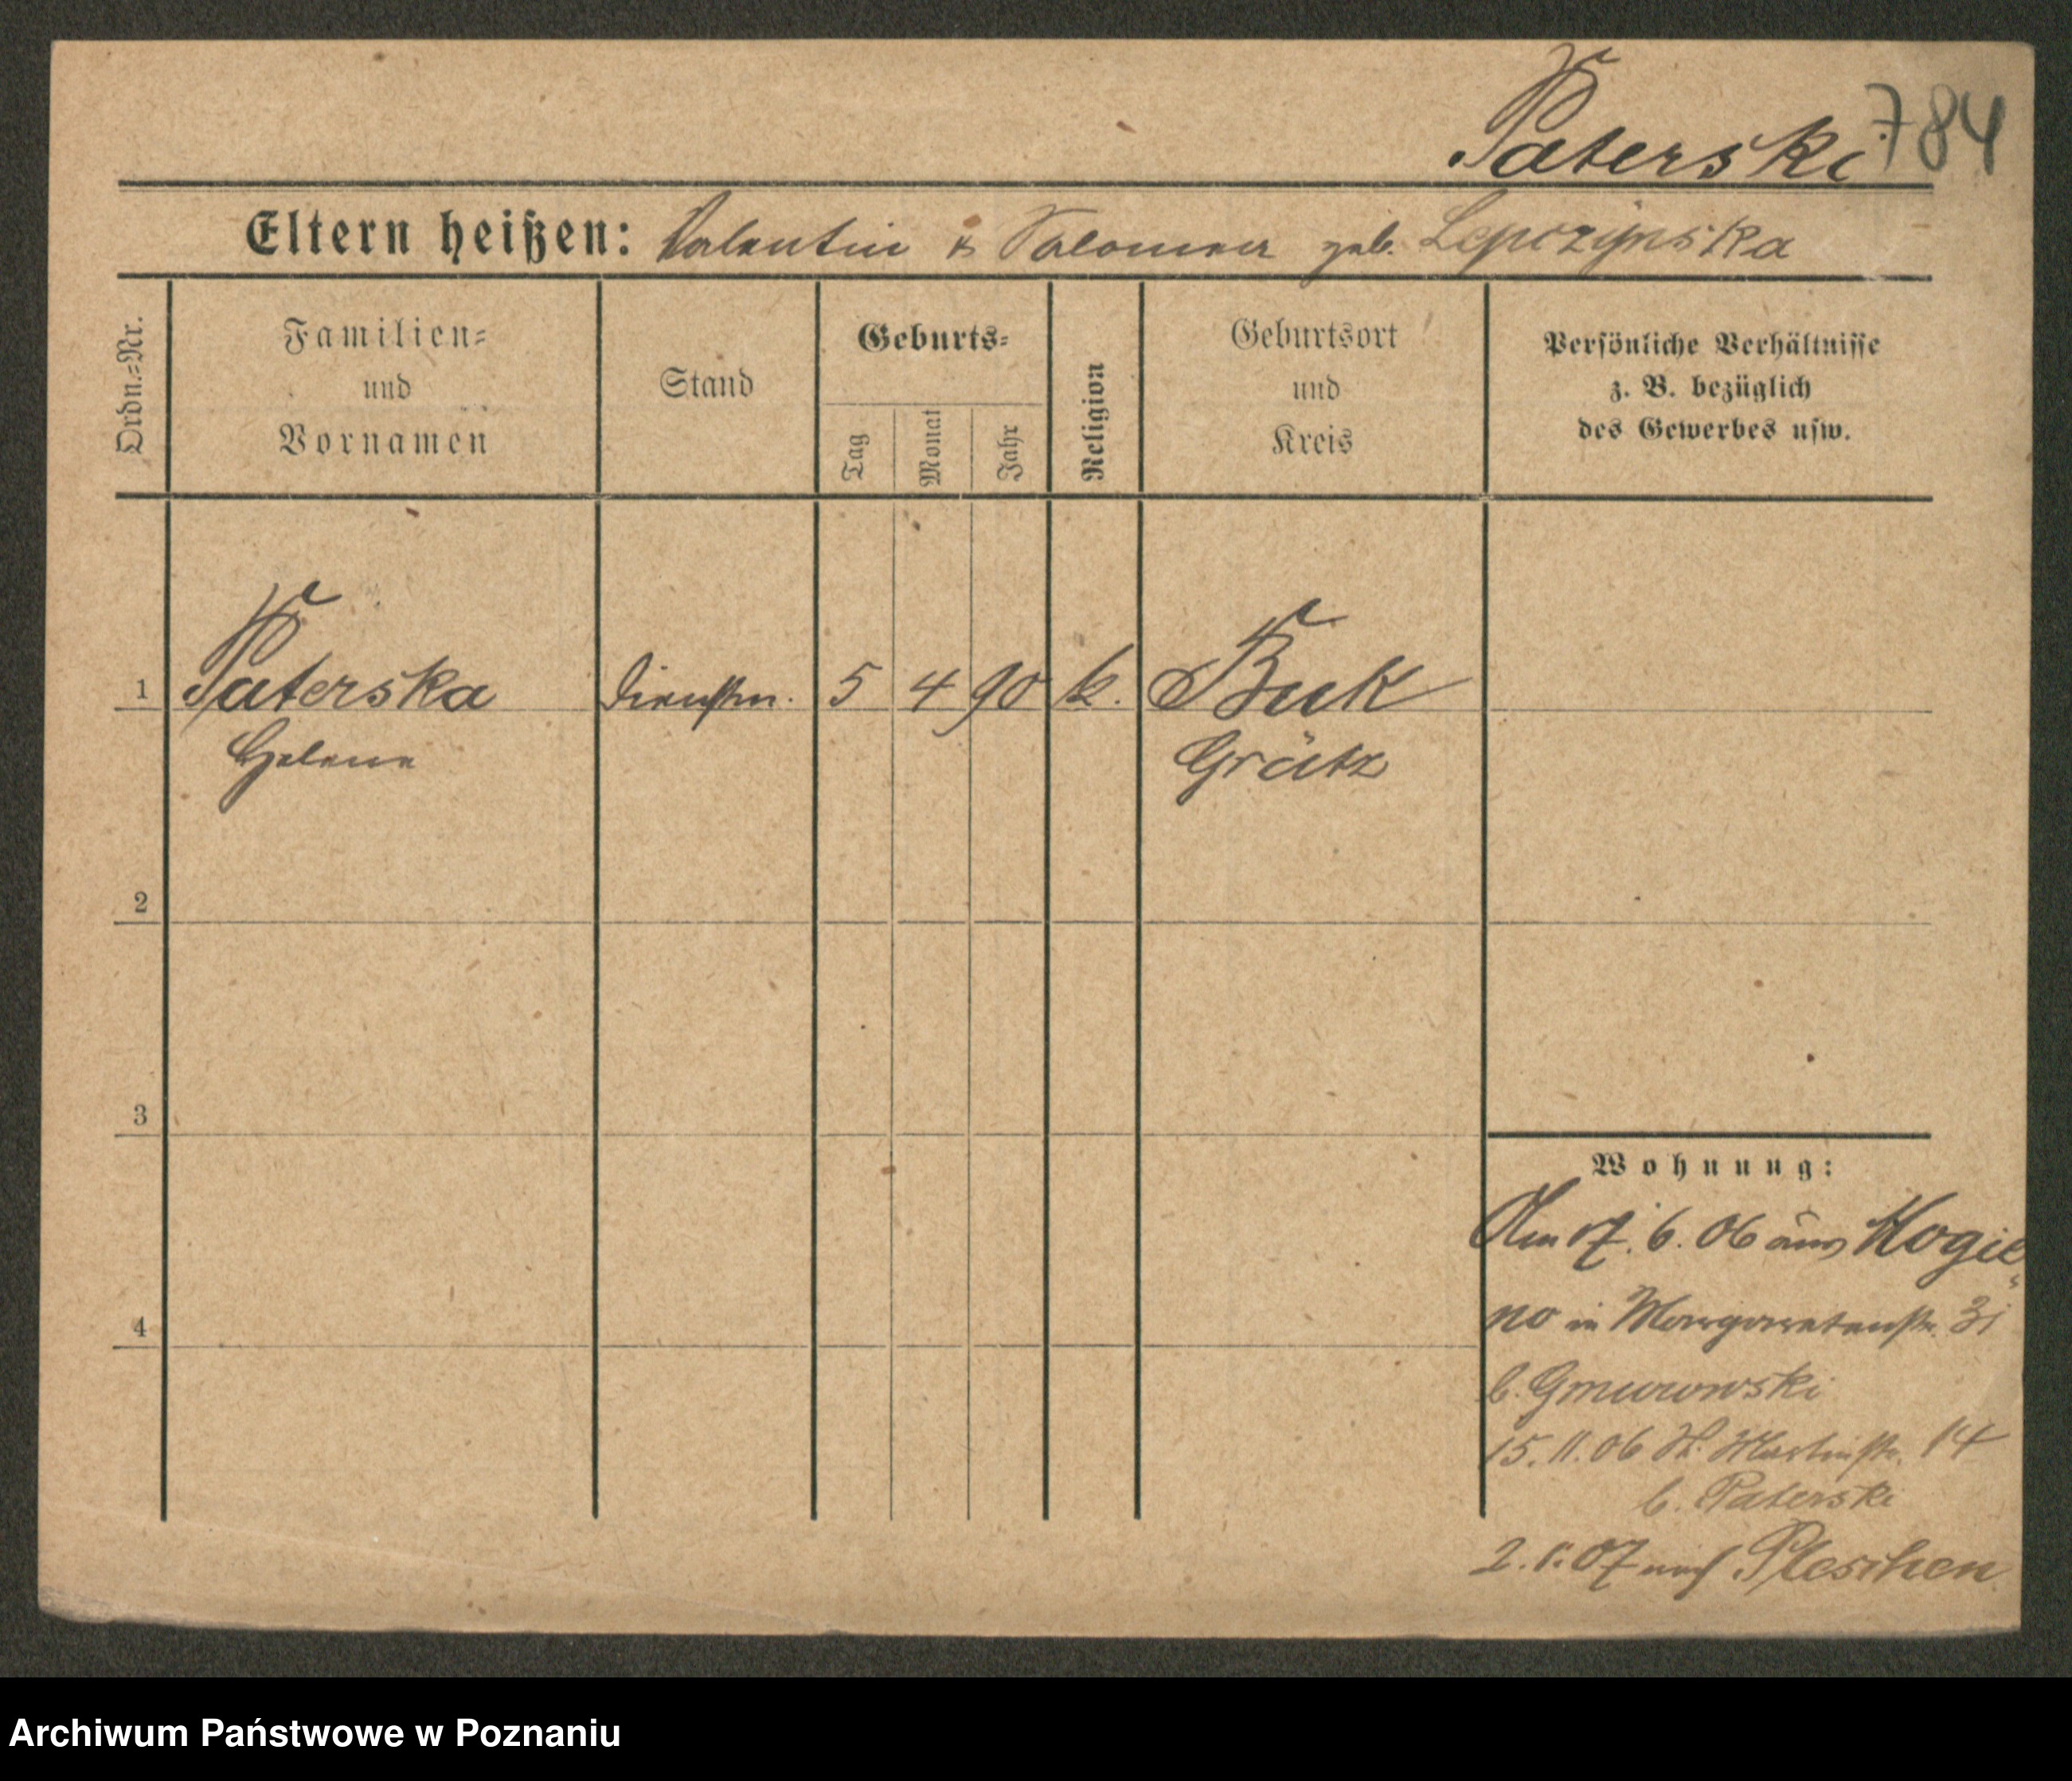 Paterski 784
Eltern heißen: Valentin & Salomea geb. Lepczynska
Ordn.-Nr.
Familien-
und
Vornamen
Stand
Geburts-
Tag
Monat
Jahr
Religion
Geburtsort
und
Kreis
Persönliche Verhältnisse
z. B. bezüglich
des Gewerbes usw.
1 Paterska Dienstm. 5 4 90 k. Buk
Helene Grätz
2
3
4
Wohnung:
Am 17. 6. 06 aus
no in Margaretenstr. 31
b. Gmurowski
15. 11. 06 St. Martinstr. 14
b. Paterski
2. 1. 07 nach Pleschen
Archiwum Państwowe w Poznaniu